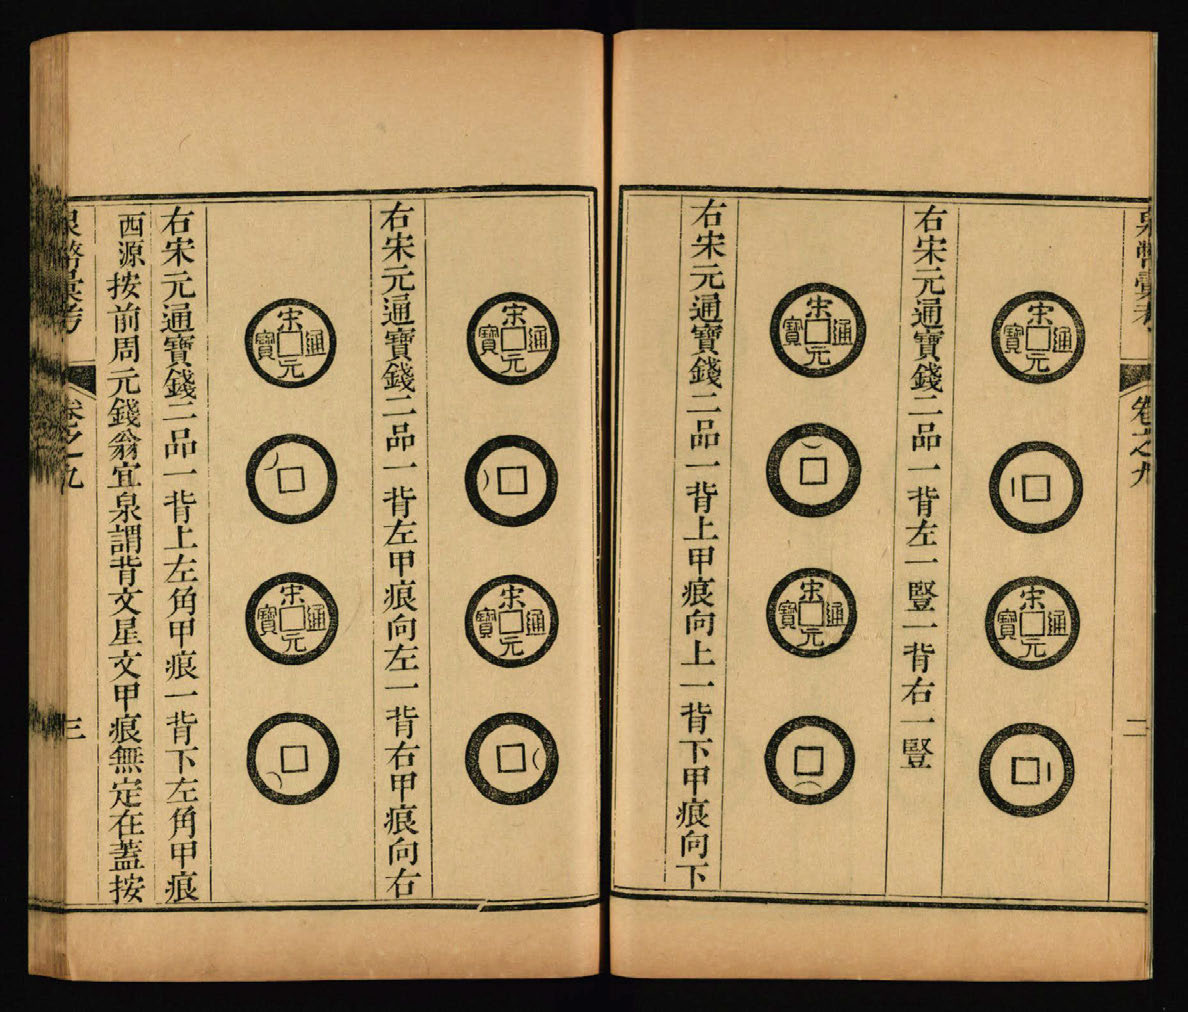 泉幣彙考
卷之九
二
宋元通寶
宋元通寶
右宋元通寶錢二品一背左一豎一背右一豎
宋元通寶
宋元通寶
右宋元通寶錢二品一背上甲痕向上一背下甲痕向下
宋元通寶
宋元通寶
右宋元通寶錢二品一背左甲痕向左一背右甲痕向右
宋元通寶
宋元通寶
右宋元通寶錢二品一背上左角甲痕一背下左角甲痕
西源按前周元錢翁宜泉謂背文星文甲痕無定在蓋按
泉幣彙考
卷之九
三